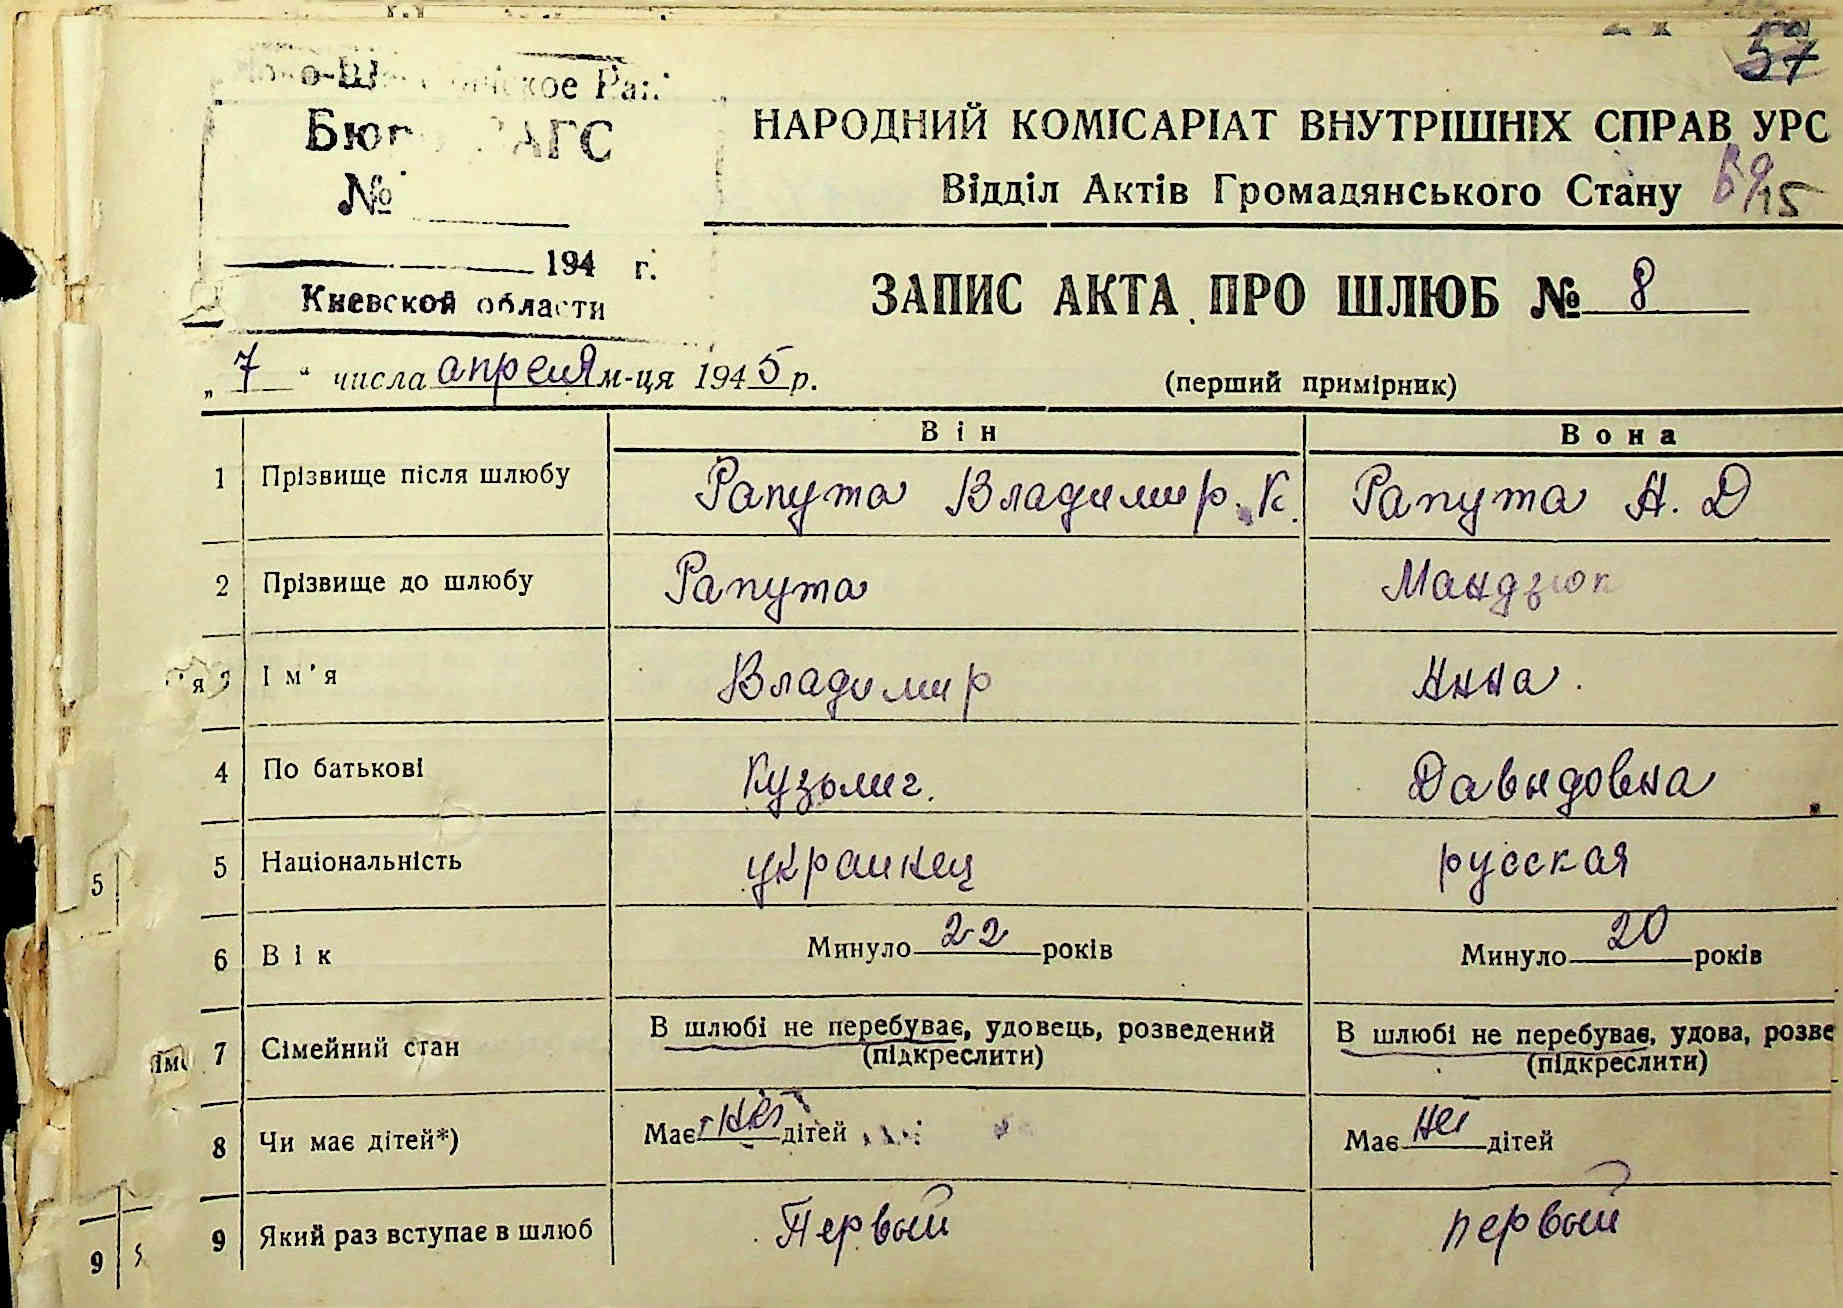 57
Бюро ЗАГС
№
НАРОДНИЙ КОМІСАРІАТ ВНУТРІШНІХ СПРАВ УРС
Відділ Актів Громадянського Стану
194 г.
Киевской области
ЗАПИС АКТА ПРО ШЛЮБ № 8
„ 7 “ числа апреля м-ця 1945 р.
(перший примірник)
Він
Вона
1 Прізвище після шлюбу Рапута Владимир. К. Рапута А. Д
2 Прізвище до шлюбу Рапута Мандзюк
Ім'я Владимир Анна.
4 По батькові Кузьмич. Давыдовна
5 Національність украинец русская
6 Вік Минуло 22 років Минуло 20 років
7 Сімейний стан В шлюбі не перебуває, удовець, розведений В шлюбі не перебуває, удова, розве
(підкреслити) (підкреслити)
8 Чи має дітей*) Має нет дітей Має нет дітей
9 Який раз вступає в шлюб Первый первый
5
9